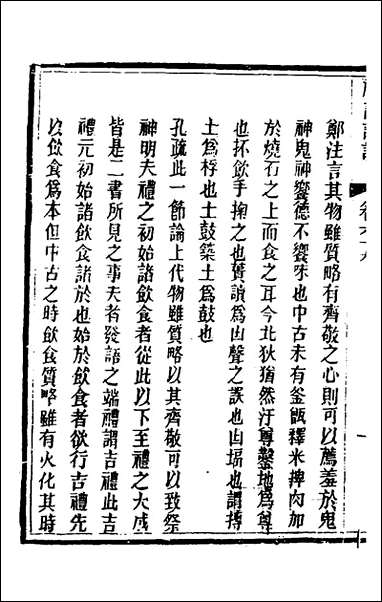 鄭注言其物雖質略有齊敬之心則可以薦羞於鬼
神鬼神饗德不饗味也中古未有釜甑釋米捭肉加
於燒石之上而食之耳今北狄猶然汙尊鑿地為尊
也抔飲手掬之也蕢讀為凷聲之誤也凷堛也謂摶
土為桴也土鼓築土為鼓也
孔疏此一節論上代物雖質略以其齊敬可以致祭
神明夫禮之初始諸飲食者從此以下至禮之大成
皆是二書所見之事夫者發語之端禮謂吉禮此吉
禮元初始諸飲食諸於也始於飲食者欲行吉禮先
以飲食為本但中古之時飲食質略雖有火化其時